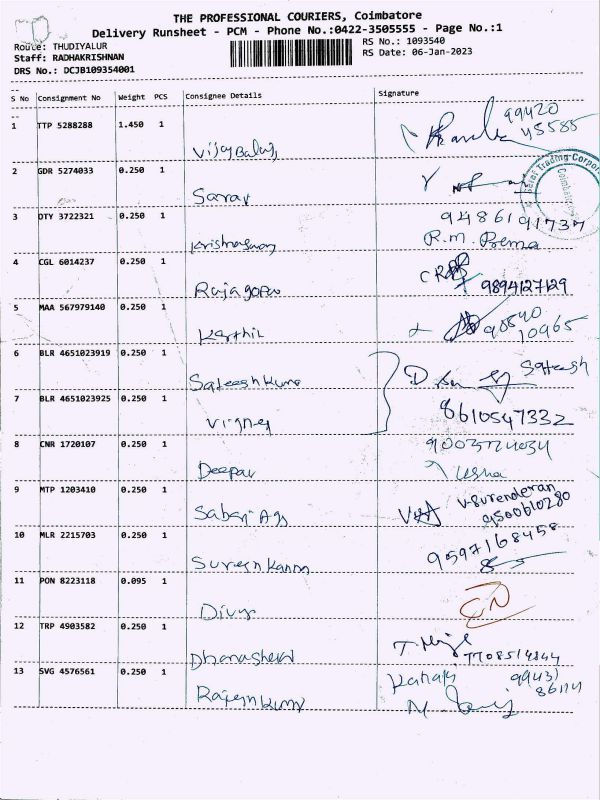 THE PROFESSIONAL COURIERS, Coimbatore
Delivery Runsheet - PCM - Phone No.:0422-3505555 - Page No.:1
Route: THUDIYALUR
RS No.: 1093540
Staff: RADHAKRISHNAN
RS Date: 06-Jan-2023
DRS No.: DCJB109354001
S No Consignment No Weight PCS Consignee Details Signature
1 TTP 5288288 1.450 1
99420
45585
Vijay Balaji
2 GDR 5274033 0.250 1
Sarav
3 OTY 3722321 0.250 1
9486191737
R.m. Prema
4 CGL 6014237 0.250 1
Rajagopal
9894127129
5 MAA 567979140 0.250 1
98540
10965
Karthik
6 BLR 4651023919 0.250 1
Satheesh
Sateesh Kumar
7 BLR 4651023925 0.250 1
8610547332
Vignes
8 CNR 1720107 0.250 1
Deepak
Usha
9 MTP 1203410 0.250 1
V. Surenderan
9500610280
10 MLR 2215703 0.250 1
9597168458
Suresh Kanna
11 PON 8223118 0.095 1
Divya
12 TRP 4903582 0.250 1
7708514844
Dhanashekar
13 SVG 4576561 0.250 1
99431
86114
Rajesh Kumar